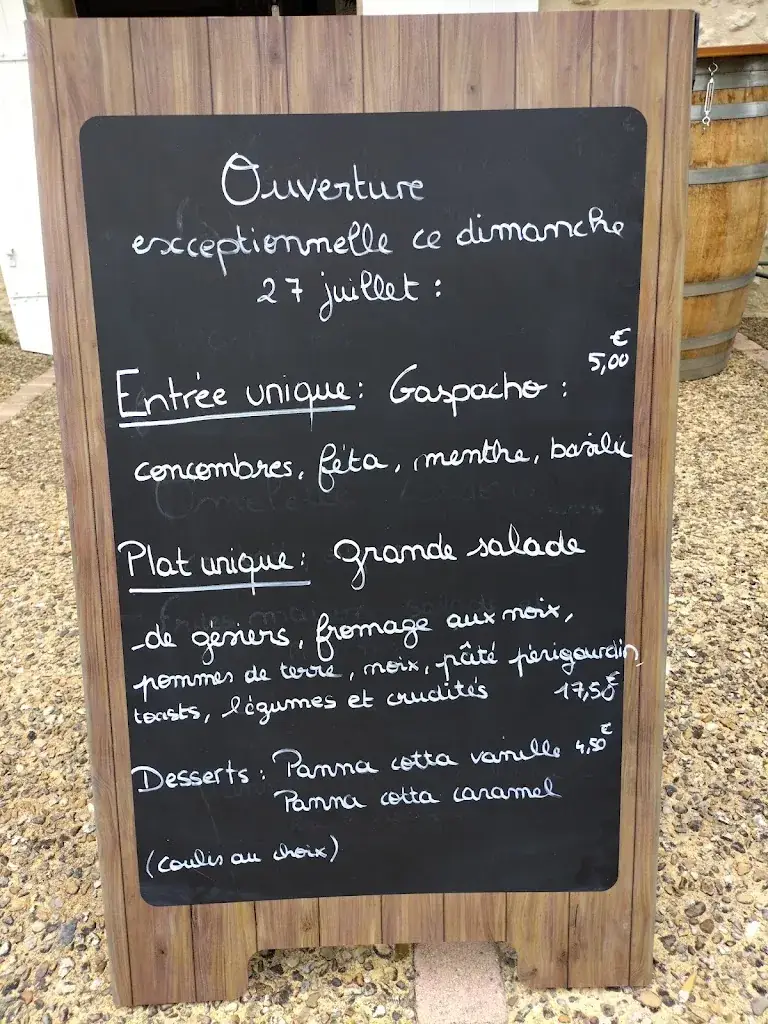 Ouverture
exceptionnelle ce dimanche
27 juillet :
€
5,00
Entrée unique : Gaspacho :
concombres, féta, menthe, basilic
Plat unique : grande salade
de gésiers, fromage aux noix,
pommes de terre, noix, pâté périgourdin,
toasts, légumes et crudités 17,50€
Desserts : Panna cotta vanille 4,50€
Panna cotta caramel
(coulis au choix)